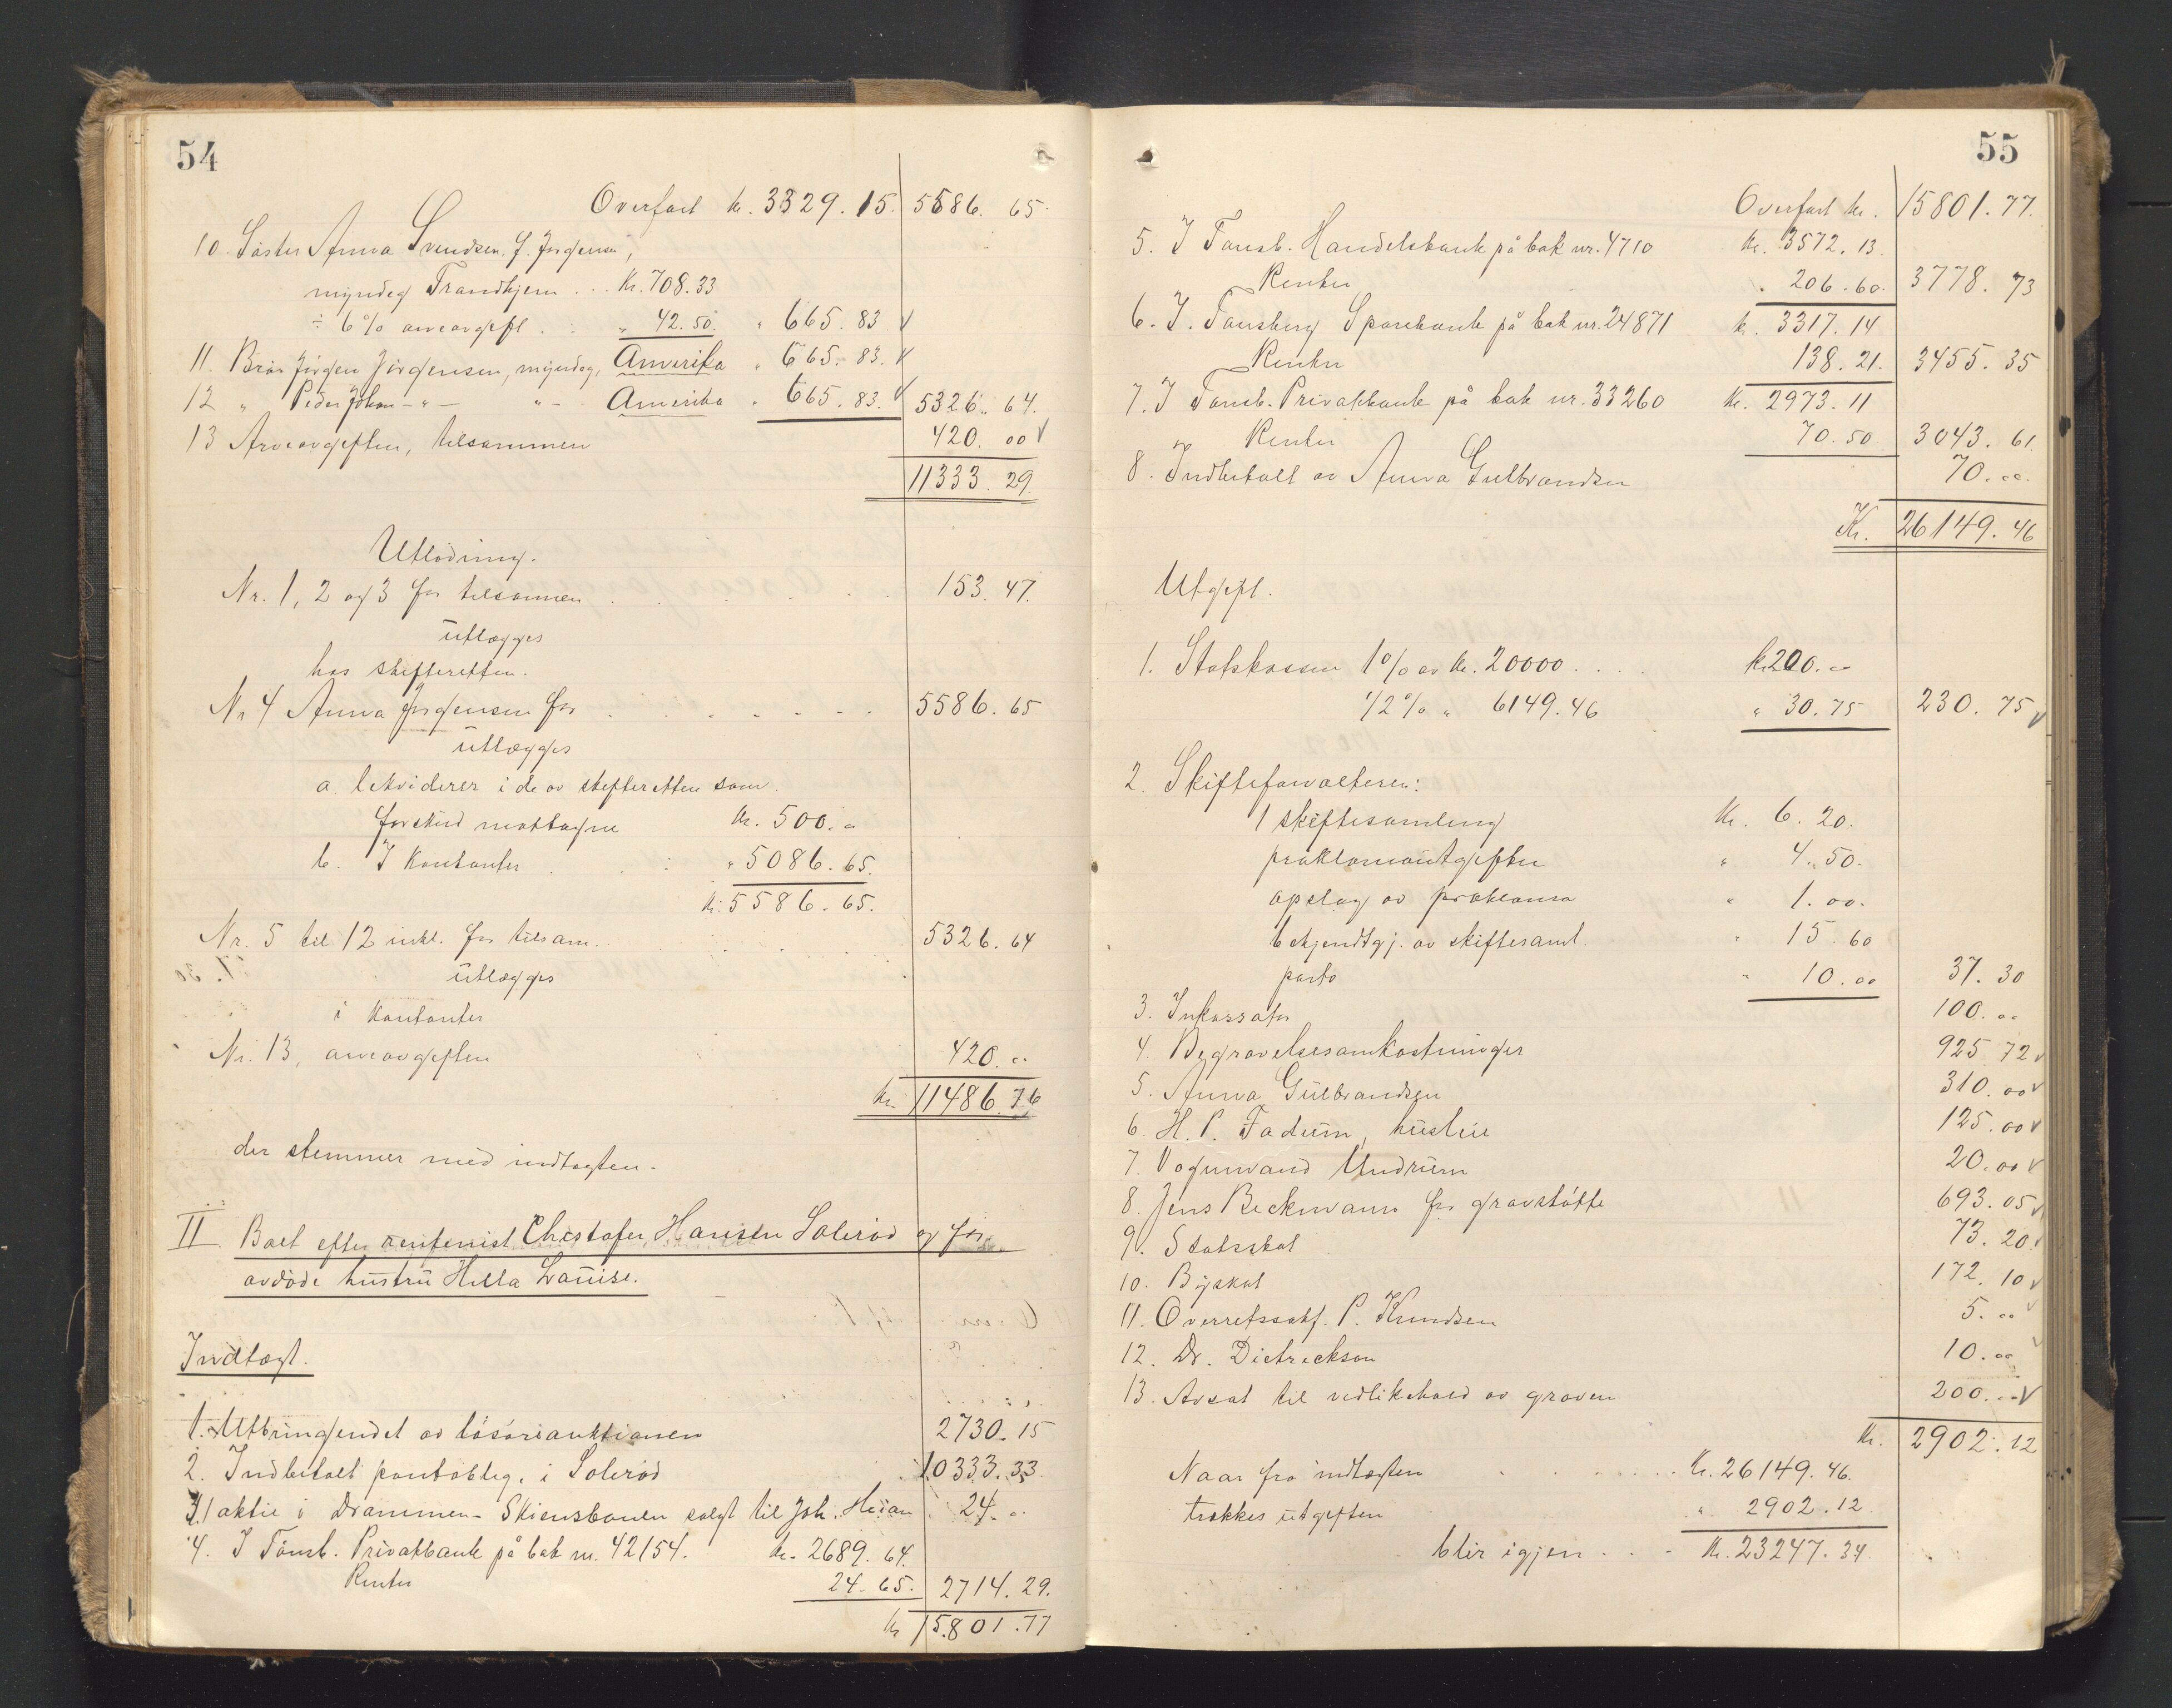 54
Overført kr. 3329.15. 5586.65.
10. Søster Anna Svendsen f. Jørgensen,
myndig Trondhjem ... Kr. 708.33
÷ 6% arveavgift . . " 42.50. " 665.83 V
11. Bror Jørgen Jørgensen, myndig, Amerika " 665.83. V
12 " Peder Johan -"- "- Amerika " 665.83. V 5326.64.
13 Arveavgiften, tilsammen 420.00 V
11333.29.
Utlodning.
Nr. 1, 2 og 3 for tilsammen . . . . . 153.47.
utlægges
hos skifteretten.
Nr 4 Anna Jørgensen for . . . . . . . 5586.65
utlægges
a. likviderer i de av skifteretten som
forskud mottagne kr. 500.-
b. I kontanter . . : " 5086.65.
kr. 5586.65.
Nr. 5 til 12 inkl. for tilsam. . . . 5326.64
utlægges
i kontanter
Nr. 13, arveavgiften 420.-
kr. 11486.76
der stemmer med indtægten.
II Boet efter rentenist Christofer Hansen Solerød og før
avdøde hustru Hella Louise.
Indtægt.
1. Utbringendet av løsøreauktionen 2730.15
2. Indbetalt pantoblig. i Solerød 10333.33
3. 1 aktie i Drammen-Skiensbanen solgt til Joh. 24.-
4. I Tønsb. Privatbank på bok nr. 42154. kr. 2689.64.
Renter 24.65. 2714.29.
kr 15.801.77
55
Overført kr. 15801.77.
5. I Tønsb. Handelsbank på bok nr. 4710 kr. 3572.13.
Renter " 206.60. 3778.73
6. I. Tønsberg Sparebank på bok nr. 24871 kr. 3317.14
Renter 138.21. 3455.35
7. I Tønsb. Privatbank på bok nr. 33260 Kr. 2973.11
Renter 70.50. 3043.61.
8. Indbetalt av Anna Gulbrandsen 70.00.
Kr. 26149.46
Utgift.
1. Statskassen 1% av kr. 20000 . . . . kr. 200.-
1/2% " 6149.46 " 30.75 230.75 V
2. Skifteforvalteren:
1 skiftesamling kr. 6.20.
proklamautgifter " 4.50.
opslag av proklama " 1.00.
bekjendtgj. av skiftesaml. " 15.60
porto " 10.00 37.30
3. Inkassator 100.00
4. Begravelsesomkostninger 925.72 V
5. Anna Gulbrandsen 310.00 V
6. H. P. Fadum, husleie 125.00 V
7. Vognmand Undrum 20.00 V
8. Jens Beckmann for gravstøtte 693.05 V
9. Statsskat 73.20. V
10. Byskat 172.10 V
11. Overretssakf. P. Knudsen 5.00 V
12. Dr. Dietrickson 10.00 V
13. Avsat til vedlikehold av graven 200.00 V
kr. 2902.12
Naar fra indtægten . . . . . . kr. 26149.46.
trækkes utgiften " 2902.12
blir igjen . . - kr. 23247.34